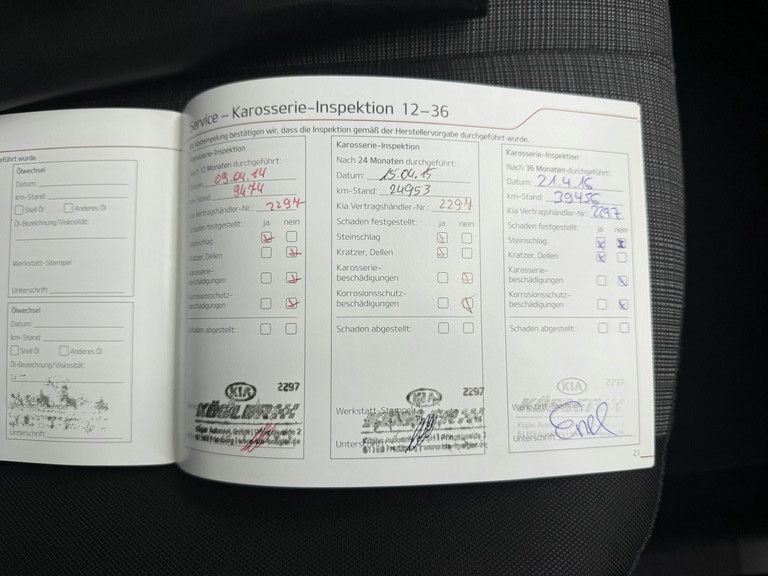 eführt wurde.
Ölwechsel
Datum:
km-Stand:
Shell Öl Anderes Öl
Öl-Bezeichnung/Viskosität:
Werkstatt-Stempel
Unterschrift
Ölwechsel
Datum:
km-Stand:
Shell Öl Anderes Öl
Öl-Bezeichnung/Viskosität:
Unterschrift
Service – Karosserie-Inspektion 12–36
bestätigen wir, dass die Inspektion gemäß der Herstellervorgabe durchgeführt wurde.
Karosserie-Inspektion
Nach 12 Monaten durchgeführt:
Datum: 09.04.14
km-Stand: 9474
Kia Vertragshändler-Nr.: 2297
Schaden festgestellt: ja nein
Steinschlag
Kratzer, Dellen
Karosserie-
beschädigungen
Korrosionsschutz-
beschädigungen
Schaden abgestellt:
KIA 2297
Karosserie-Inspektion
Nach 24 Monaten durchgeführt:
Datum: 15.04.15
km-Stand: 24953
Kia Vertragshändler-Nr.: 2297
Schaden festgestellt: ja nein
Steinschlag
Kratzer, Dellen
Karosserie-
beschädigungen
Korrosionsschutz-
beschädigungen
Schaden abgestellt:
KIA 2297
Werkstatt-Stempel
Karosserie-Inspektion
Nach 36 Monaten durchgeführt:
Datum: 21.4.16
km-Stand: 39456
Kia Vertragshändler-Nr.: 2297
Schaden festgestellt: ja nein
Steinschlag
Kratzer, Dellen
Karosserie-
beschädigungen
Korrosionsschutz-
beschädigungen
Schaden abgestellt:
KIA 2297
Werkstatt-Stempel
Unterschrift
21